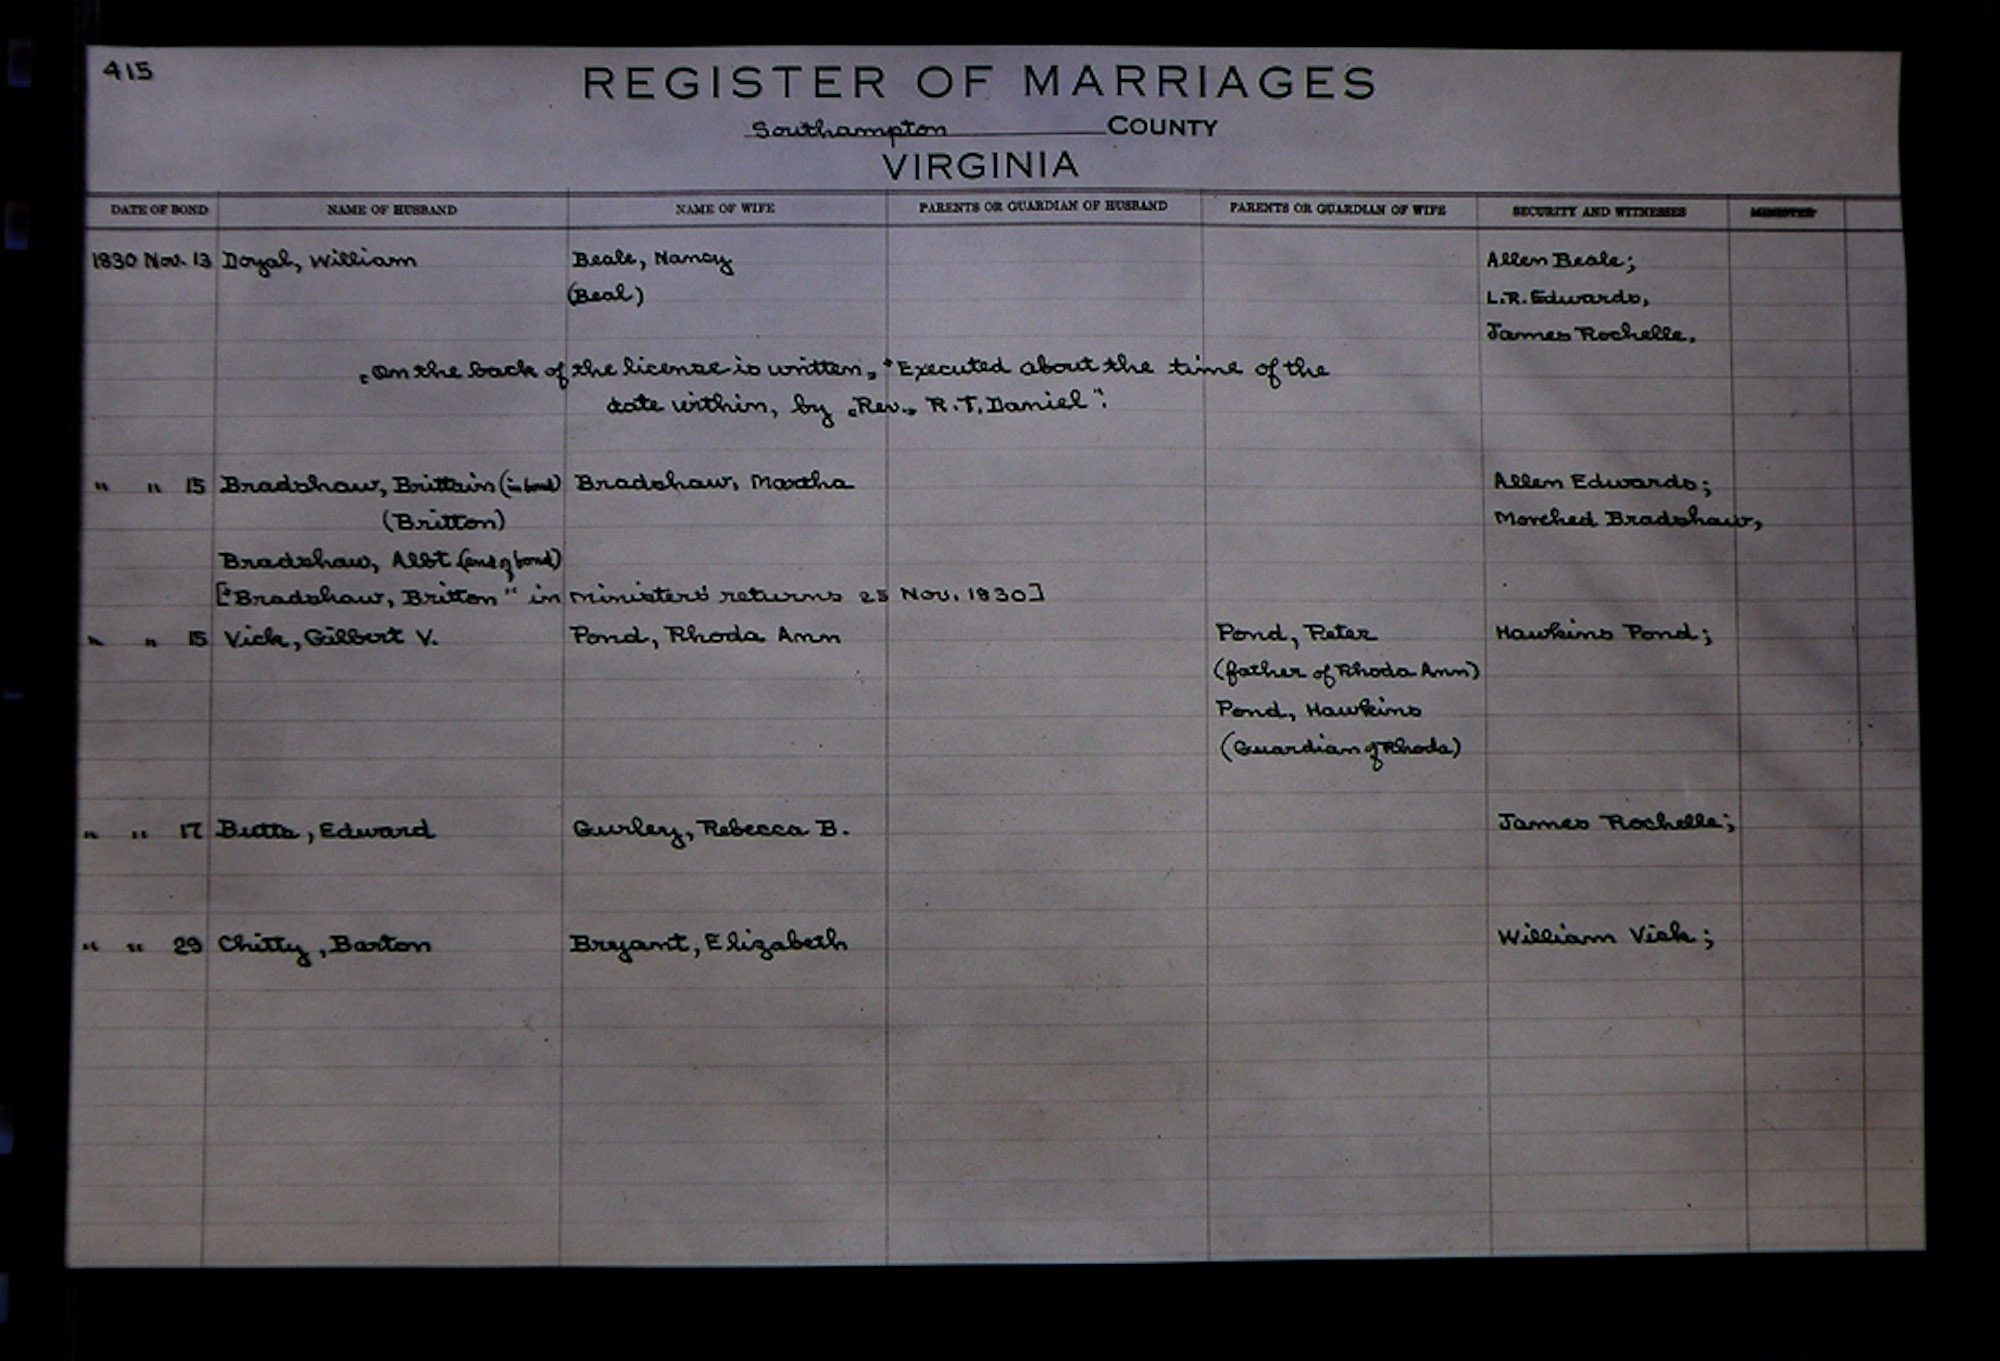 415
REGISTER OF MARRIAGES
Southampton COUNTY
VIRGINIA
DATE OF BOND NAME OF HUSBAND NAME OF WIFE PARENTS OR GUARDIAN OF HUSBAND PARENTS OR GUARDIAN OF WIFE SECURITY AND WITNESSES MINISTER
1830 Nov. 13 Doyal, William Beale, Nancy Allen Beale;
(Beal) L.R. Edwards,
James Rochelle.
[On the back of the license is written, "Executed about the time of the
date within, by [Rev.] R.T. Daniel".
" " 15 Bradshaw, Brittain (in bond) Bradshaw, Martha Allen Edwards;
(Britton) Morched Bradshaw,
Bradshaw, Albt (end of bond)
["Bradshaw, Britton" in ministers' returns 25 Nov. 1830]
" " 15 Vick, Gilbert V. Pond, Rhoda Ann Pond, Peter Hawkins Pond;
(father of Rhoda Ann)
Pond, Hawkins
(Guardian of Rhoda)
" " 17 Butts, Edward Gurley, Rebecca B. James Rochelle;
" " 29 Chitty, Barton Bryant, Elizabeth William Vick;